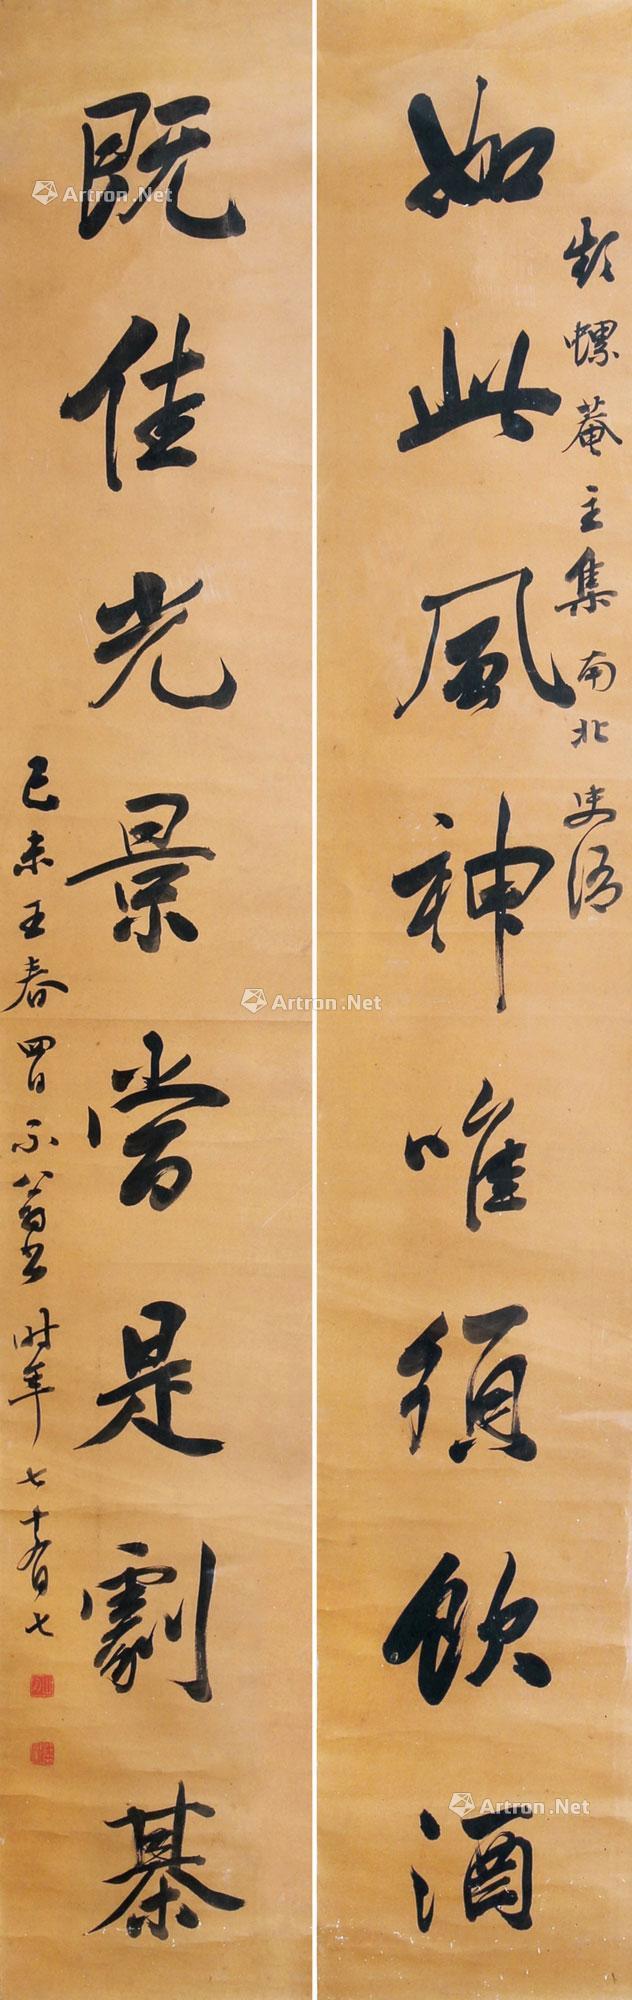 如此風神唯須飲酒
螺菴主集南北史語
既佳光景當是劇棊
己未王春四日不翁書時年七十有七
Artron.Net
Artron.Net
Artron.Net